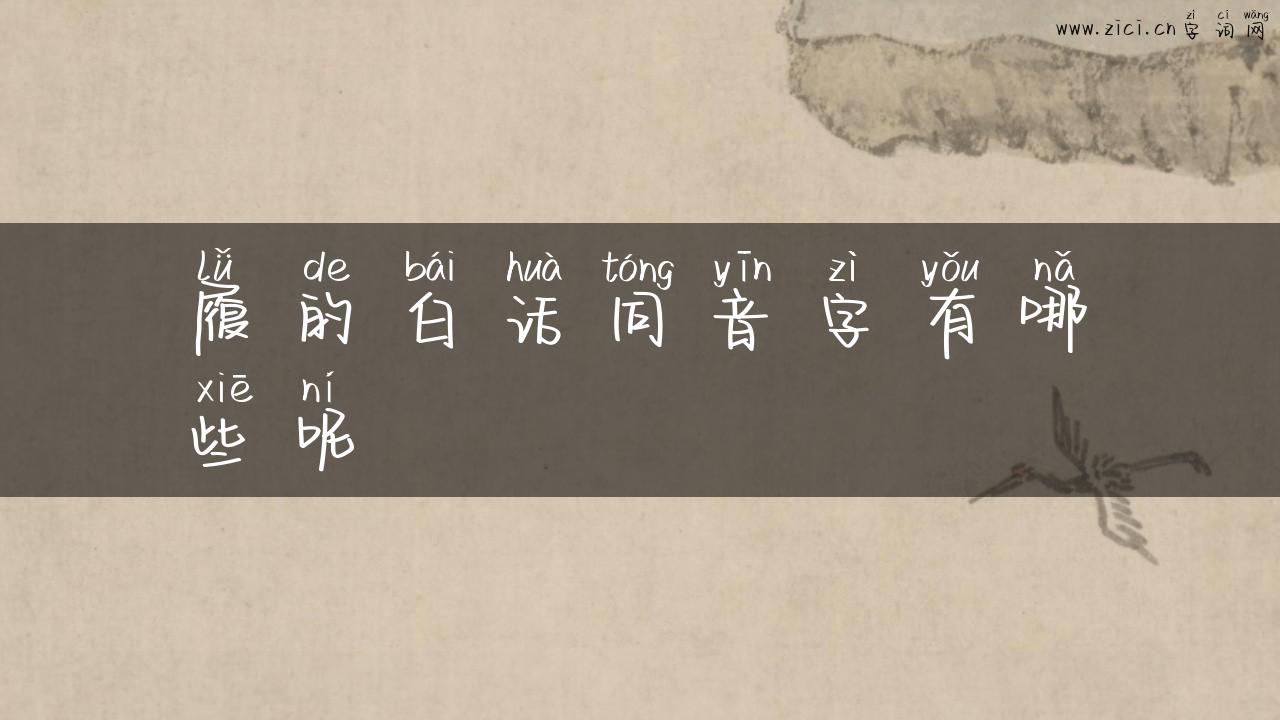 zì cí wǎng
www.zici.cn 字词网
lǚ de bái huà tóng yīn zì yǒu nǎ
履的白话同音字有哪
xiē ní
些呢